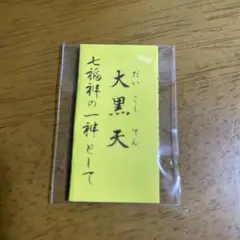 大黒天
だいこくてん
七福神の一神として